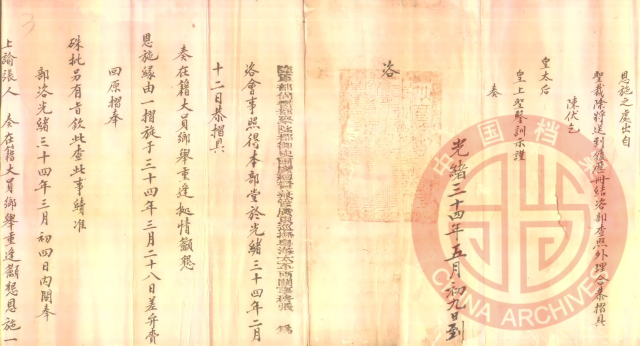 恩施之處出自
聖裁除將送到履歷冊結咨部查照外理合恭摺具
陳伏乞
皇太后
皇上聖鑒訓示謹
奏
光緒三十四年五月初九日到
咨
咨會事照得本部堂於光緒三十四年二月
十二日恭摺具
奏在籍大員鄉舉重逢據情籲懇
恩施緣由一摺旋于三十四年三月二十八日差弁賫
回原摺奉
硃批另有旨欽此查此事續准
部咨光緒三十四年三月初四日內閣奉
上諭張人 奏在籍大員鄉舉重逢籲懇恩施一
3
中國檔案
CHINA ARCHIVES